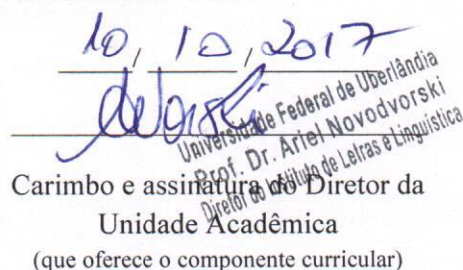 10, 10, 2017
Universidade Federal de Uberlândia
Prof. Dr. Ariel Novodvorski
Diretor do Instituto de Letras e Linguística
Carimbo e assinatura do Diretor da
Unidade Acadêmica
(que oferece o componente curricular)